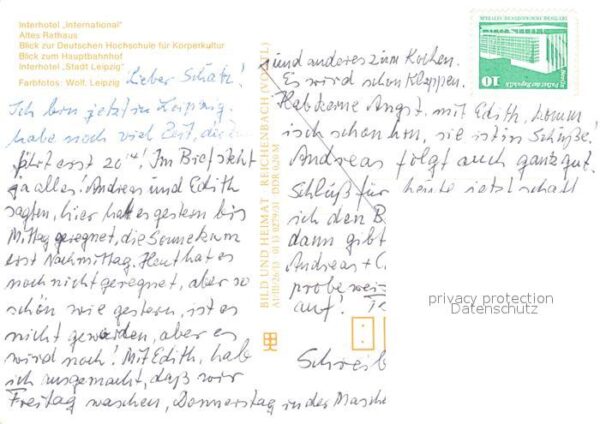 Interhotel „International"
Altes Rathaus
Blick zur Deutschen Hochschule für Körperkultur
Blick zum Hauptbahnhof
Interhotel „Stadt Leipzig"
Farbfotos: Wolf, Leipzig
Lieber Schatz!
Ich bin jetzt in Leipzig,
habe noch viel Zeit, die
fährt erst 20¹⁴! Im Brief steht
ja alles! Andreas und Edith
sagten, hier hat es gestern bis
Mittag geregnet, die Sonne kam
erst Nachmittag. Heut hat es
noch nicht geregnet, aber so
schön wie gestern, ist es
nicht geworden, aber es
wird noch! Mit Edith, hab
ich ausgemacht, daß wir
Freitag waschen, Donnerstag in der Masche
und anderes zum Kochen.
Es wird schon klappen.
Hab keine Angst, mit Edith, komm
isch schon hin, sie ist in Schuße!
Andreas folgt auch ganz gut.
Schluß für heute jetzt schaff
ich den B
dann gibt
Andreas + C
probe wei
auf!
Schreib
BILD UND HEIMAT REICHENBACH (VOGTL.)
A1/III/26/13 01 13 0279/31 DDR 0,20 M
DEUTSCHE DEMOKRATISCHE REPUBLIK
Berlin
Palast der Republik
10
privacy protection
Datenschutz